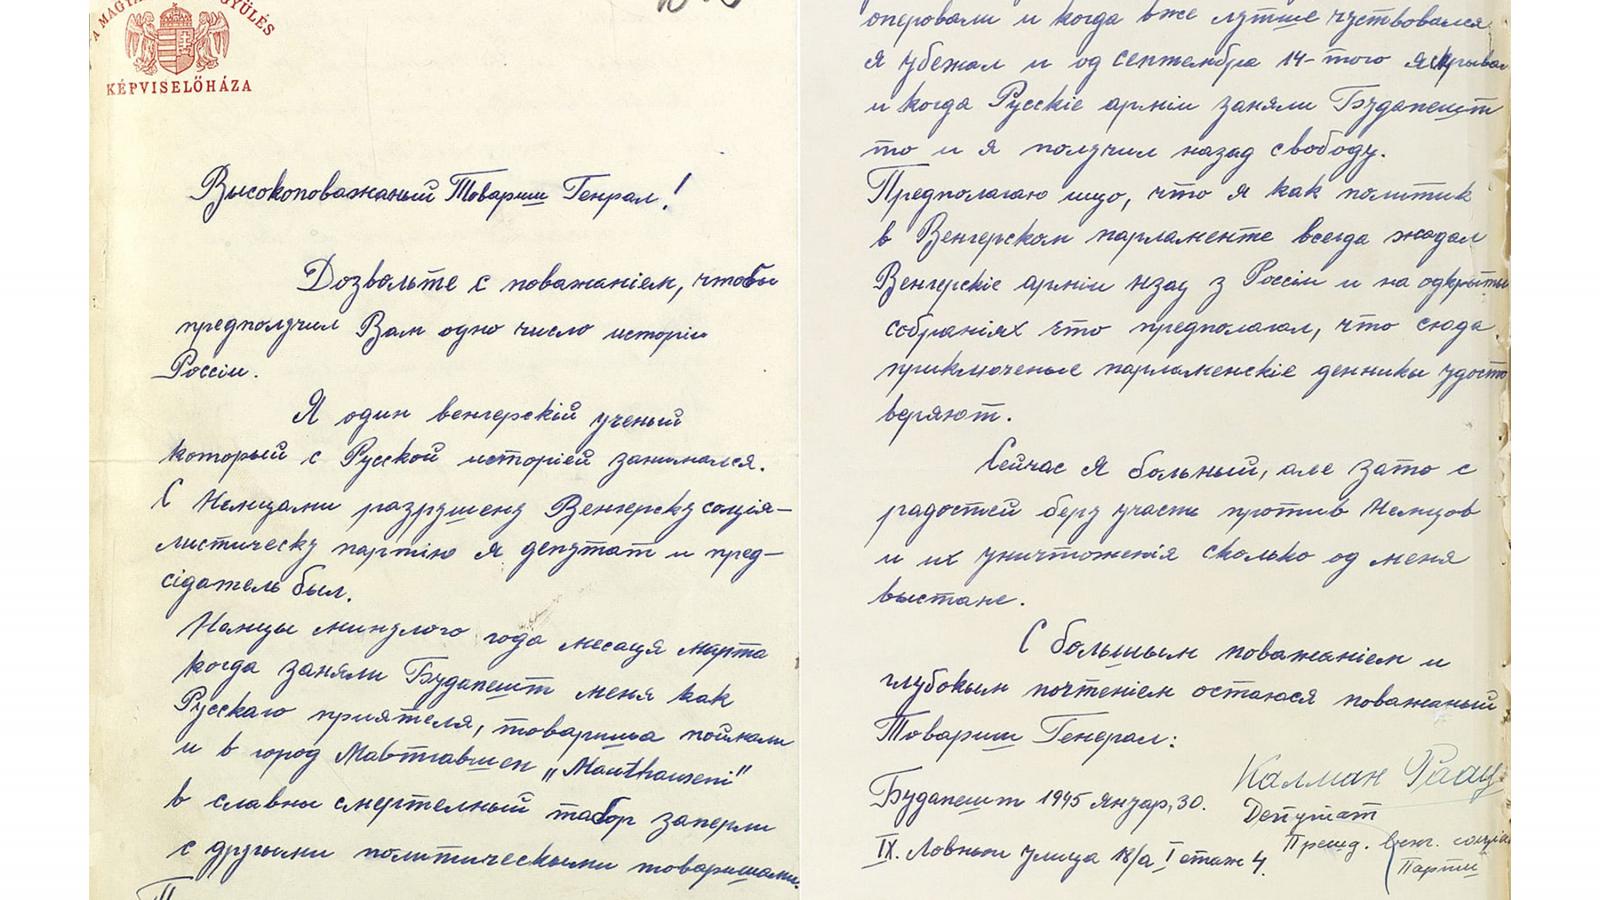 A MAGYAR GYŰLÉS
KÉPVISELŐHÁZA
Высокоповажаный Товариш Генрал!
Дозвольте с поважаніем, чтобы
предполучил Вам одно число исторіи
Россіи.
Я один венгерскій ученый
который с Русской исторіей занимался.
С Немцами разрушену Венгерску соція-
листическу партію я депутат и пред-
сідатель был.
Немцы минулого года месаця марта
когда заняли Будапешт меня как
Русскаго приятеля, товариша поймали
и в город Мавтгавшен „Mauthauseni"
в славны смертелный табор заперли
с другыми политическыми товаришами.
оперовали и когда вже лутше чуствовался
я убежал и од септембра 14-того я скрывал
и когда Русскіе арміи заняли Будапешт
то и я получил назад свободу.
Предполагаю ищо, что я как политик
в Венгерском парламенте всегда жадал
Венгерскіе арміи назад з Россіи и на одкрытых
собраніях это предполагал, что сюда
приключеные парламенскіе денники удосто
веряют.
Сейчас я больный, але зато с
радостей беру участь против Немцов
и их уничтоженія сколько од меня
выстане.
С большым поважаніем и
глубокым почтеніем остаюся поважаный
Товариш Генерал:
Будапешт 1945 Януар, 30.
Калман Раац
Депутат
IX. Ловньи улица 18/а I етаж 4.
Предс. венг. социа
Партии